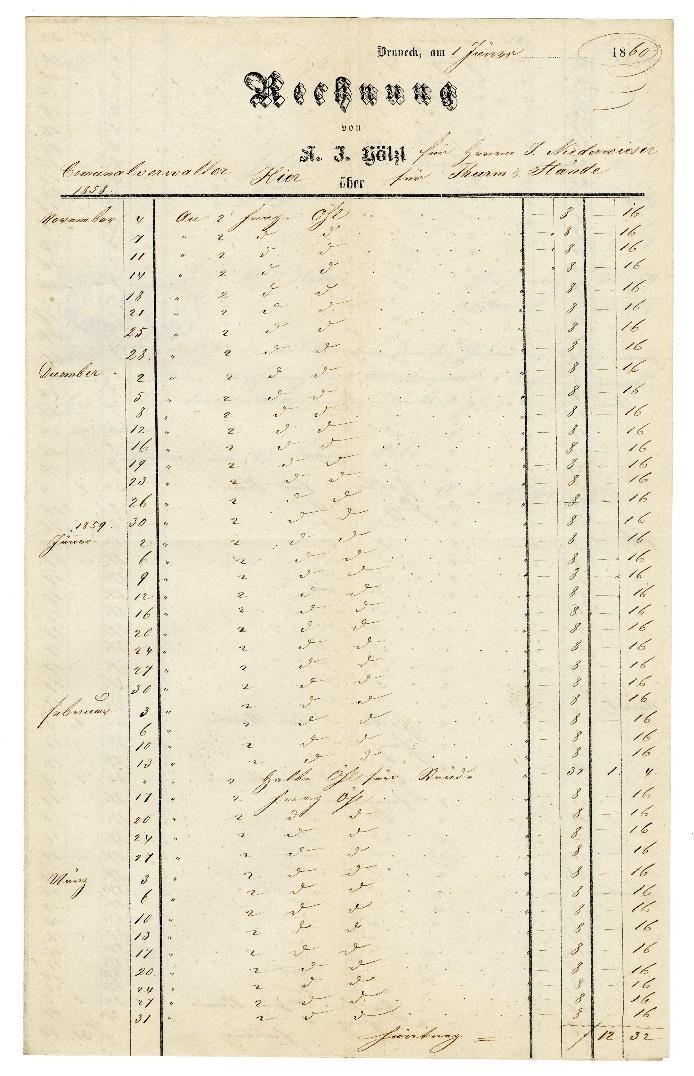 Bruneck, am 1 Jäner 1860
Rechnung
von
A. J. Hölzl für Herrn J. Niederwieser
Comunalverwalter Hier über für Thurm & Stände
1858.
November 4 An 2 Öhl 8 — 16
7 " 2 d d — 8 — 16
11 " 2 d d — 8 — 16
14 " 2 d d — 8 — 16
18 " 2 d d — 8 — 16
21 " 2 d d — 8 — 16
25 " 2 d d — 8 — 16
28 " 2 d d — 8 — 16
December 2 " 2 d d — 8 — 16
5 " 2 d d — 8 — 16
8 " 2 d d — 8 — 16
12 " 2 d d — 8 — 16
16 " 2 d d — 8 — 16
19 " 2 d d — 8 — 16
23 " 2 d d — 8 — 16
26 " 2 d d — 8 — 16
30 " 2 d d — 8 — 16
1859
Jäner 2 " 2 d d — 8 — 16
6 " 2 d d — 8 — 16
9 " 2 d d — 8 — 16
12 " 2 d d — 8 — 16
16 " 2 d d — 8 — 16
20 " 2 d d — 8 — 16
24 " 2 d d — 8 — 16
27 " 2 d d — 8 — 16
30 " 2 d d — 8 — 16
Februar 3 " 2 d d — 8 — 16
6 " 2 d d — 8 — 16
10 " 2 d d — 8 — 16
13 " 2 d d — 8 — 16
" " 2 Halbe Öhl für — 32 1 4
17 " 2 Öhl — 8 — 16
20 " 2 d d — 8 — 16
24 " 2 d d — 8 — 16
27 " 2 d d — 8 — 16
März 3 " 2 d d — 8 — 16
6 " 2 d d — 8 — 16
10 " 2 d d — 8 — 16
13 " 2 d d — 8 — 16
17 " 2 d d — 8 — 16
20 " 2 d d — 8 — 16
24 " 2 d d — 8 — 16
27 " 2 d d — 8 — 16
31 " 2 d d — 8 — 16
Fürtrag = f 12 32